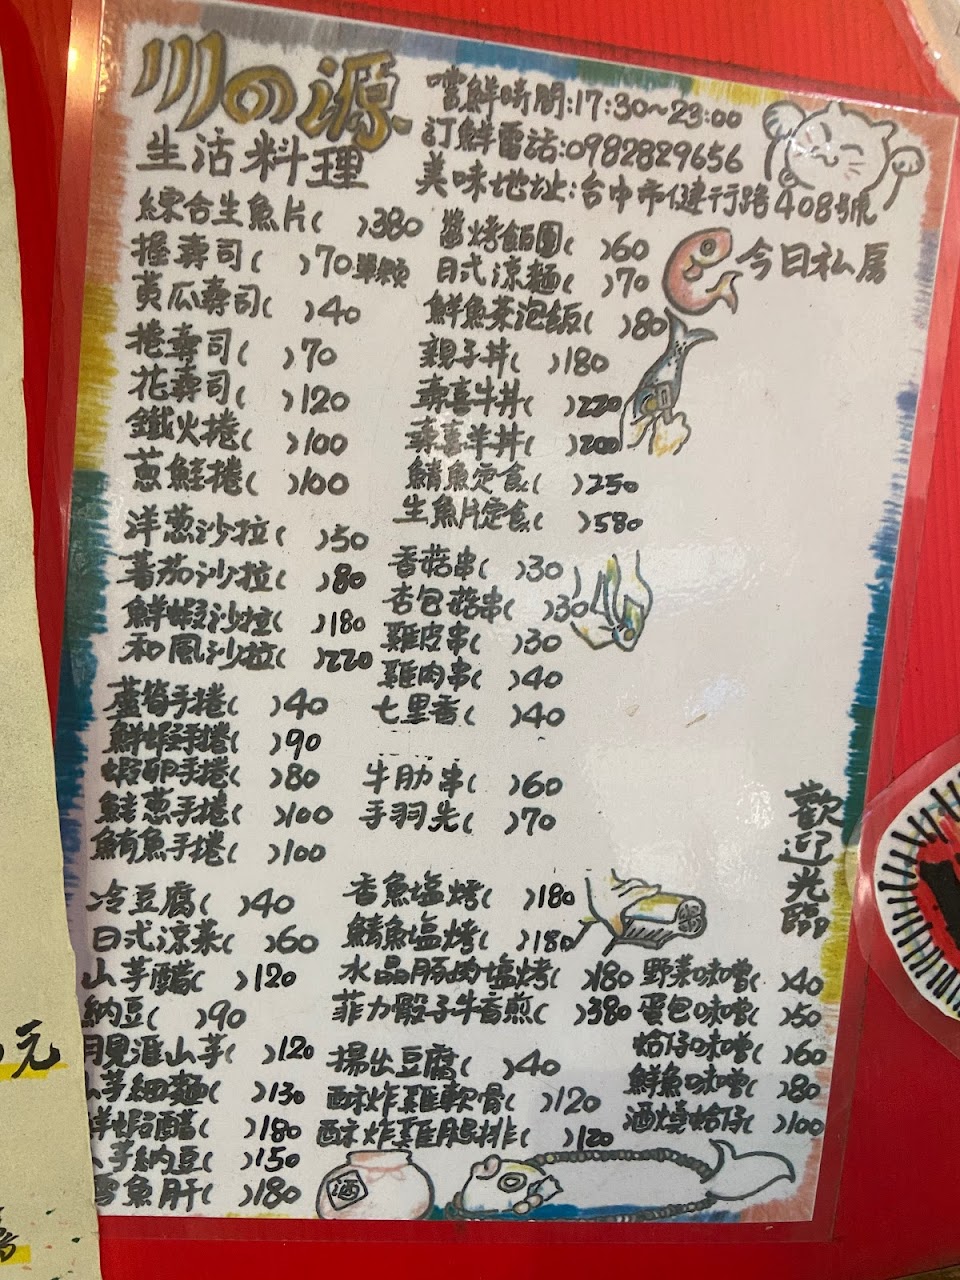 川の源
生活料理
嚐鮮時間:17:30~23:00
訂鮮電話:0982829656
美味地址:台中市健行路408號
綜合生魚片( )380
握壽司( )70單顆
黃瓜壽司( )40
捲壽司( )70
花壽司( )120
鐵火捲( )100
蔥鮭捲( )100
洋蔥沙拉( )50
蕃茄沙拉( )80
鮮蝦沙拉( )180
和風沙拉( )220
蘆筍手捲( )40
鮮蝦手捲( )90
蝦卵手捲( )80
鮭蔥手捲( )100
鮪魚手捲( )100
冷豆腐( )40
日式涼菜( )60
山芋醋( )120
納豆( )90
月見淮山芋( )120
山芋細麵( )130
鮮蝦醋( )180
芋納豆( )150
魚肝( )180
醬烤飯糰( )60
日式涼麵( )70
鮮魚茶泡飯( )80
親子丼( )180
壽喜牛丼( )220
壽喜羊丼( )200
鯖魚定食( )250
生魚片定食( )580
香菇串( )30
杏包菇串( )30
雞皮串( )30
雞肉串( )40
七里香( )40
牛肋串( )60
手羽先( )70
香魚塩烤( )180
鯖魚塩烤( )180
水晶豚肉塩烤( )180
菲力骰子牛香煎( )380
揚出豆腐( )40
酥炸雞軟骨( )120
酥炸雞腿排( )120
今日私房
歡迎光臨
野菜味噌( )40
蛋包味噌( )50
蛤仔味噌( )60
鮮魚味噌( )80
酒燒蛤仔( )100
酒
元